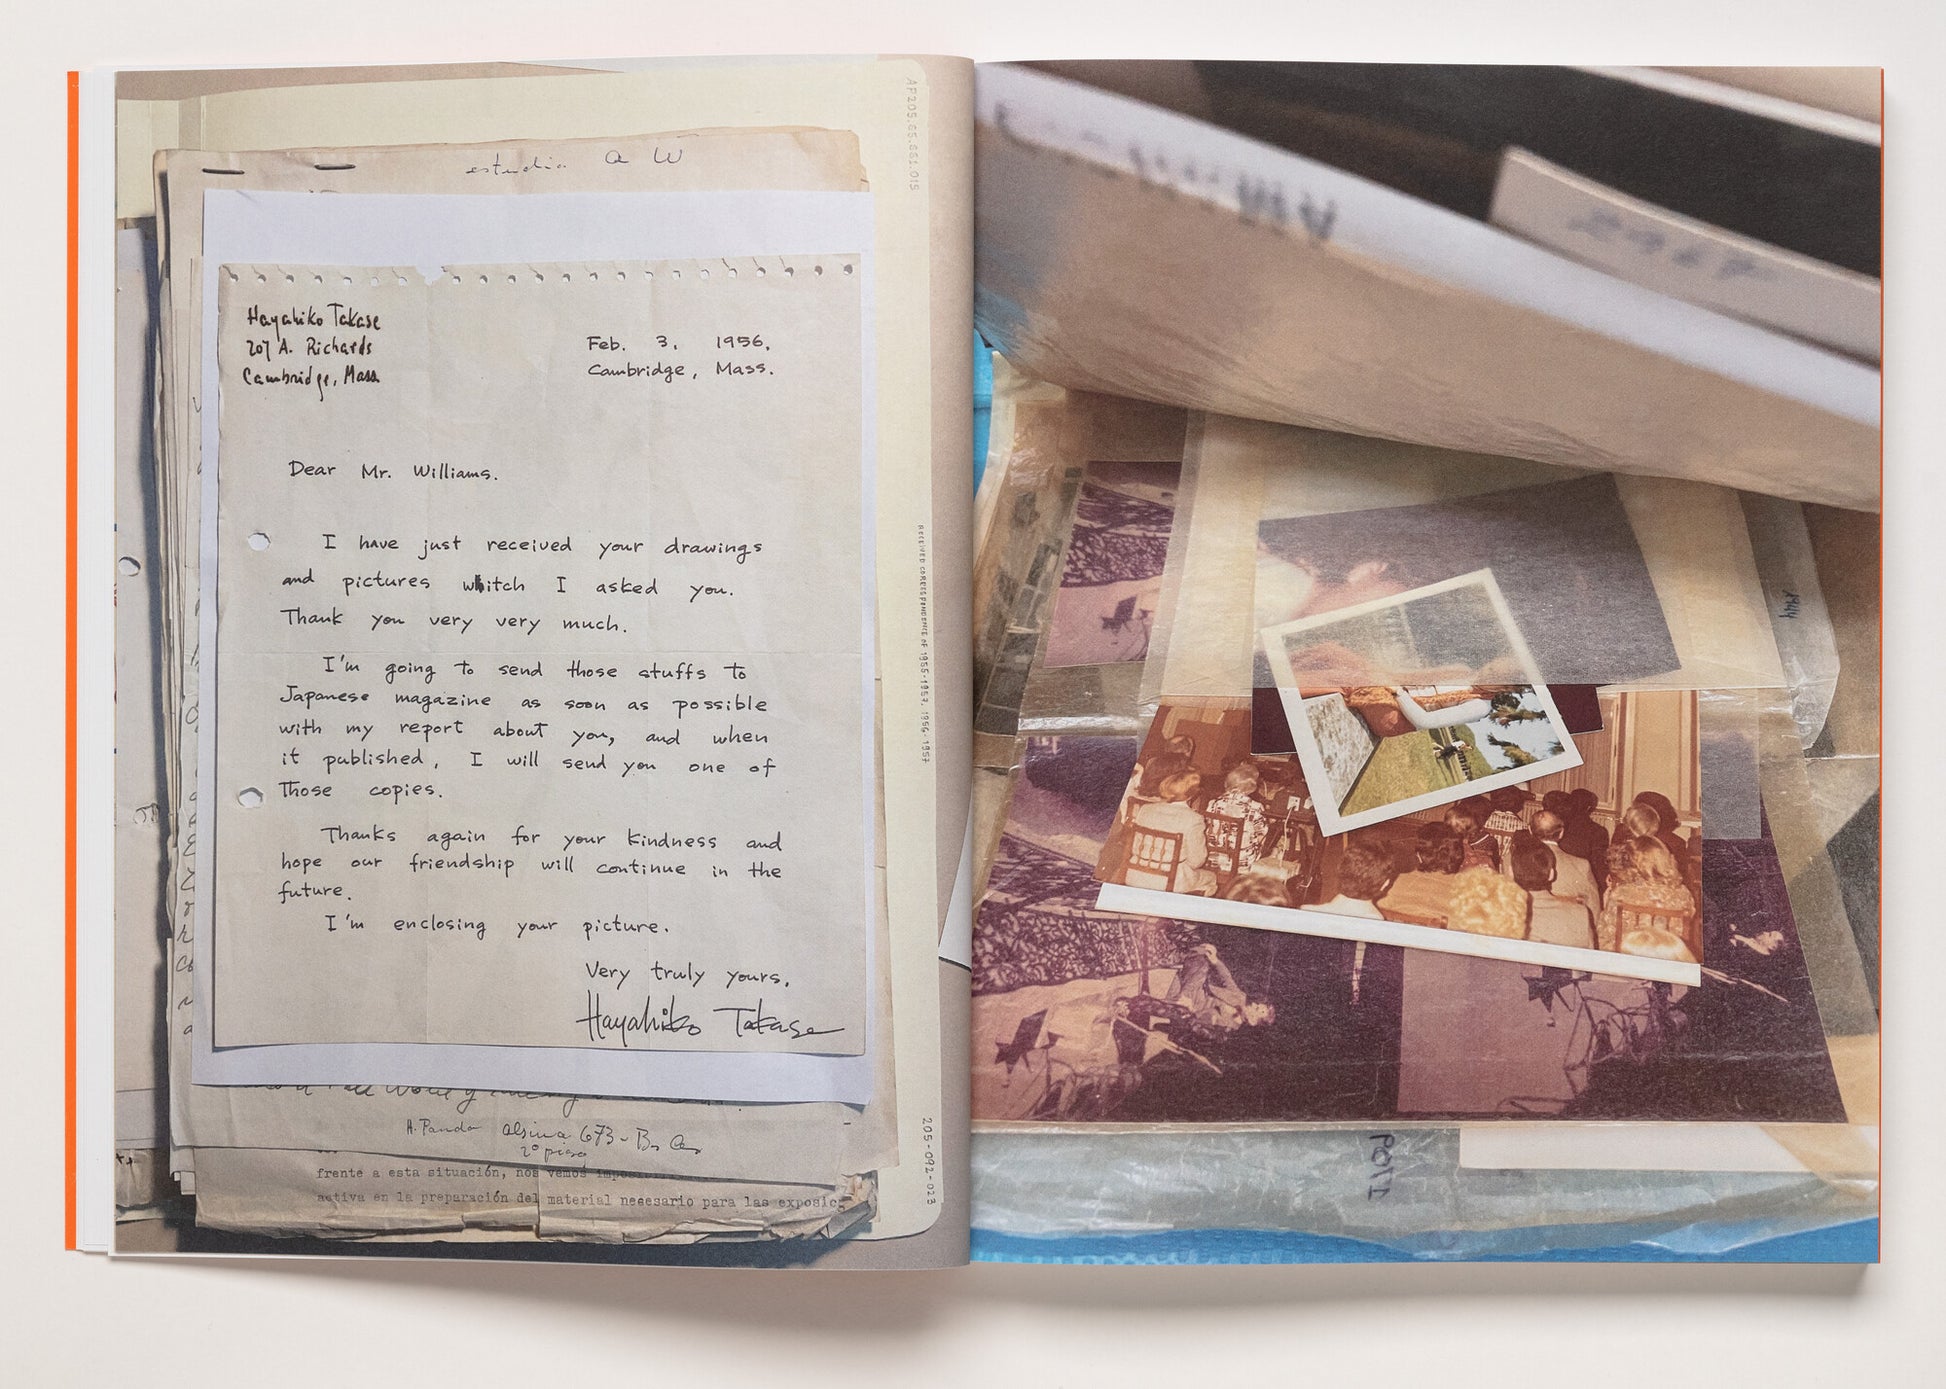 AP205.S5.SS1.015
estudio a W
Hayahiko Takase
207 A. Richards
Cambridge, Mass
Feb. 3. 1956.
Cambridge, Mass.
Dear Mr. Williams.
I have just received your drawings
and pictures whitch I asked you.
Thank you very very much.
I'm going to send those stuffs to
Japanese magazine as soon as possible
with my report about you, and when
it published, I will send you one of
Those copies.
Thanks again for your kindness and
hope our friendship will continue in the
future.
I'm enclosing your picture.
Very truly yours.
Hayahiko Takase
RECEIVED CORRESPONDENCE OF 1955-1957, 1956-1957
A. Pando Alsina 673 - Bs As
2º piso
frente a esta situación, nos vemos
activa en la preparación del material necesario para las exposic
205-092-023
POLI